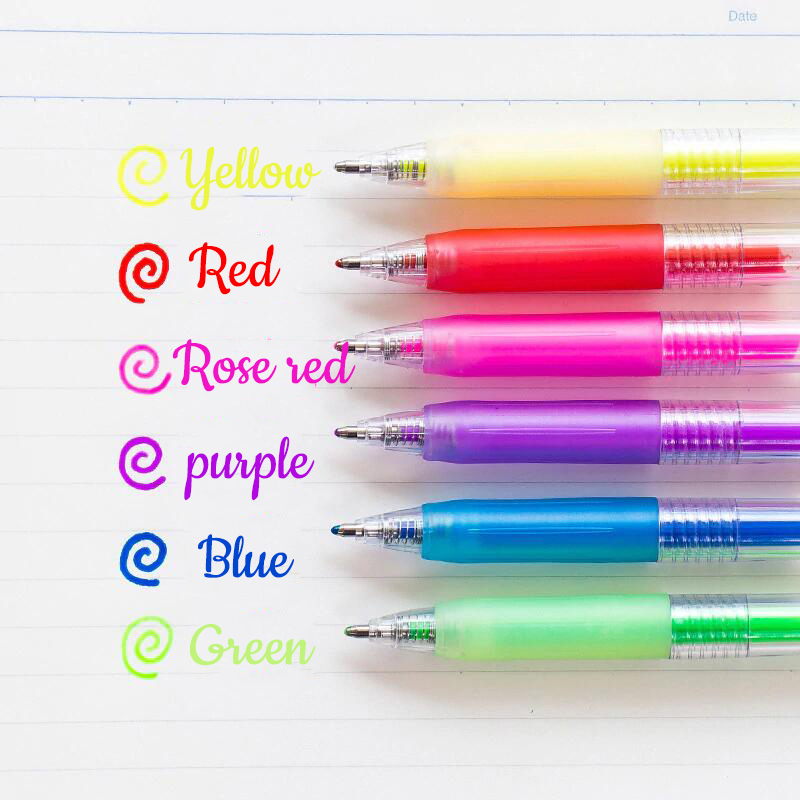 Date
Yellow
Red
Rose red
purple
Blue
Green